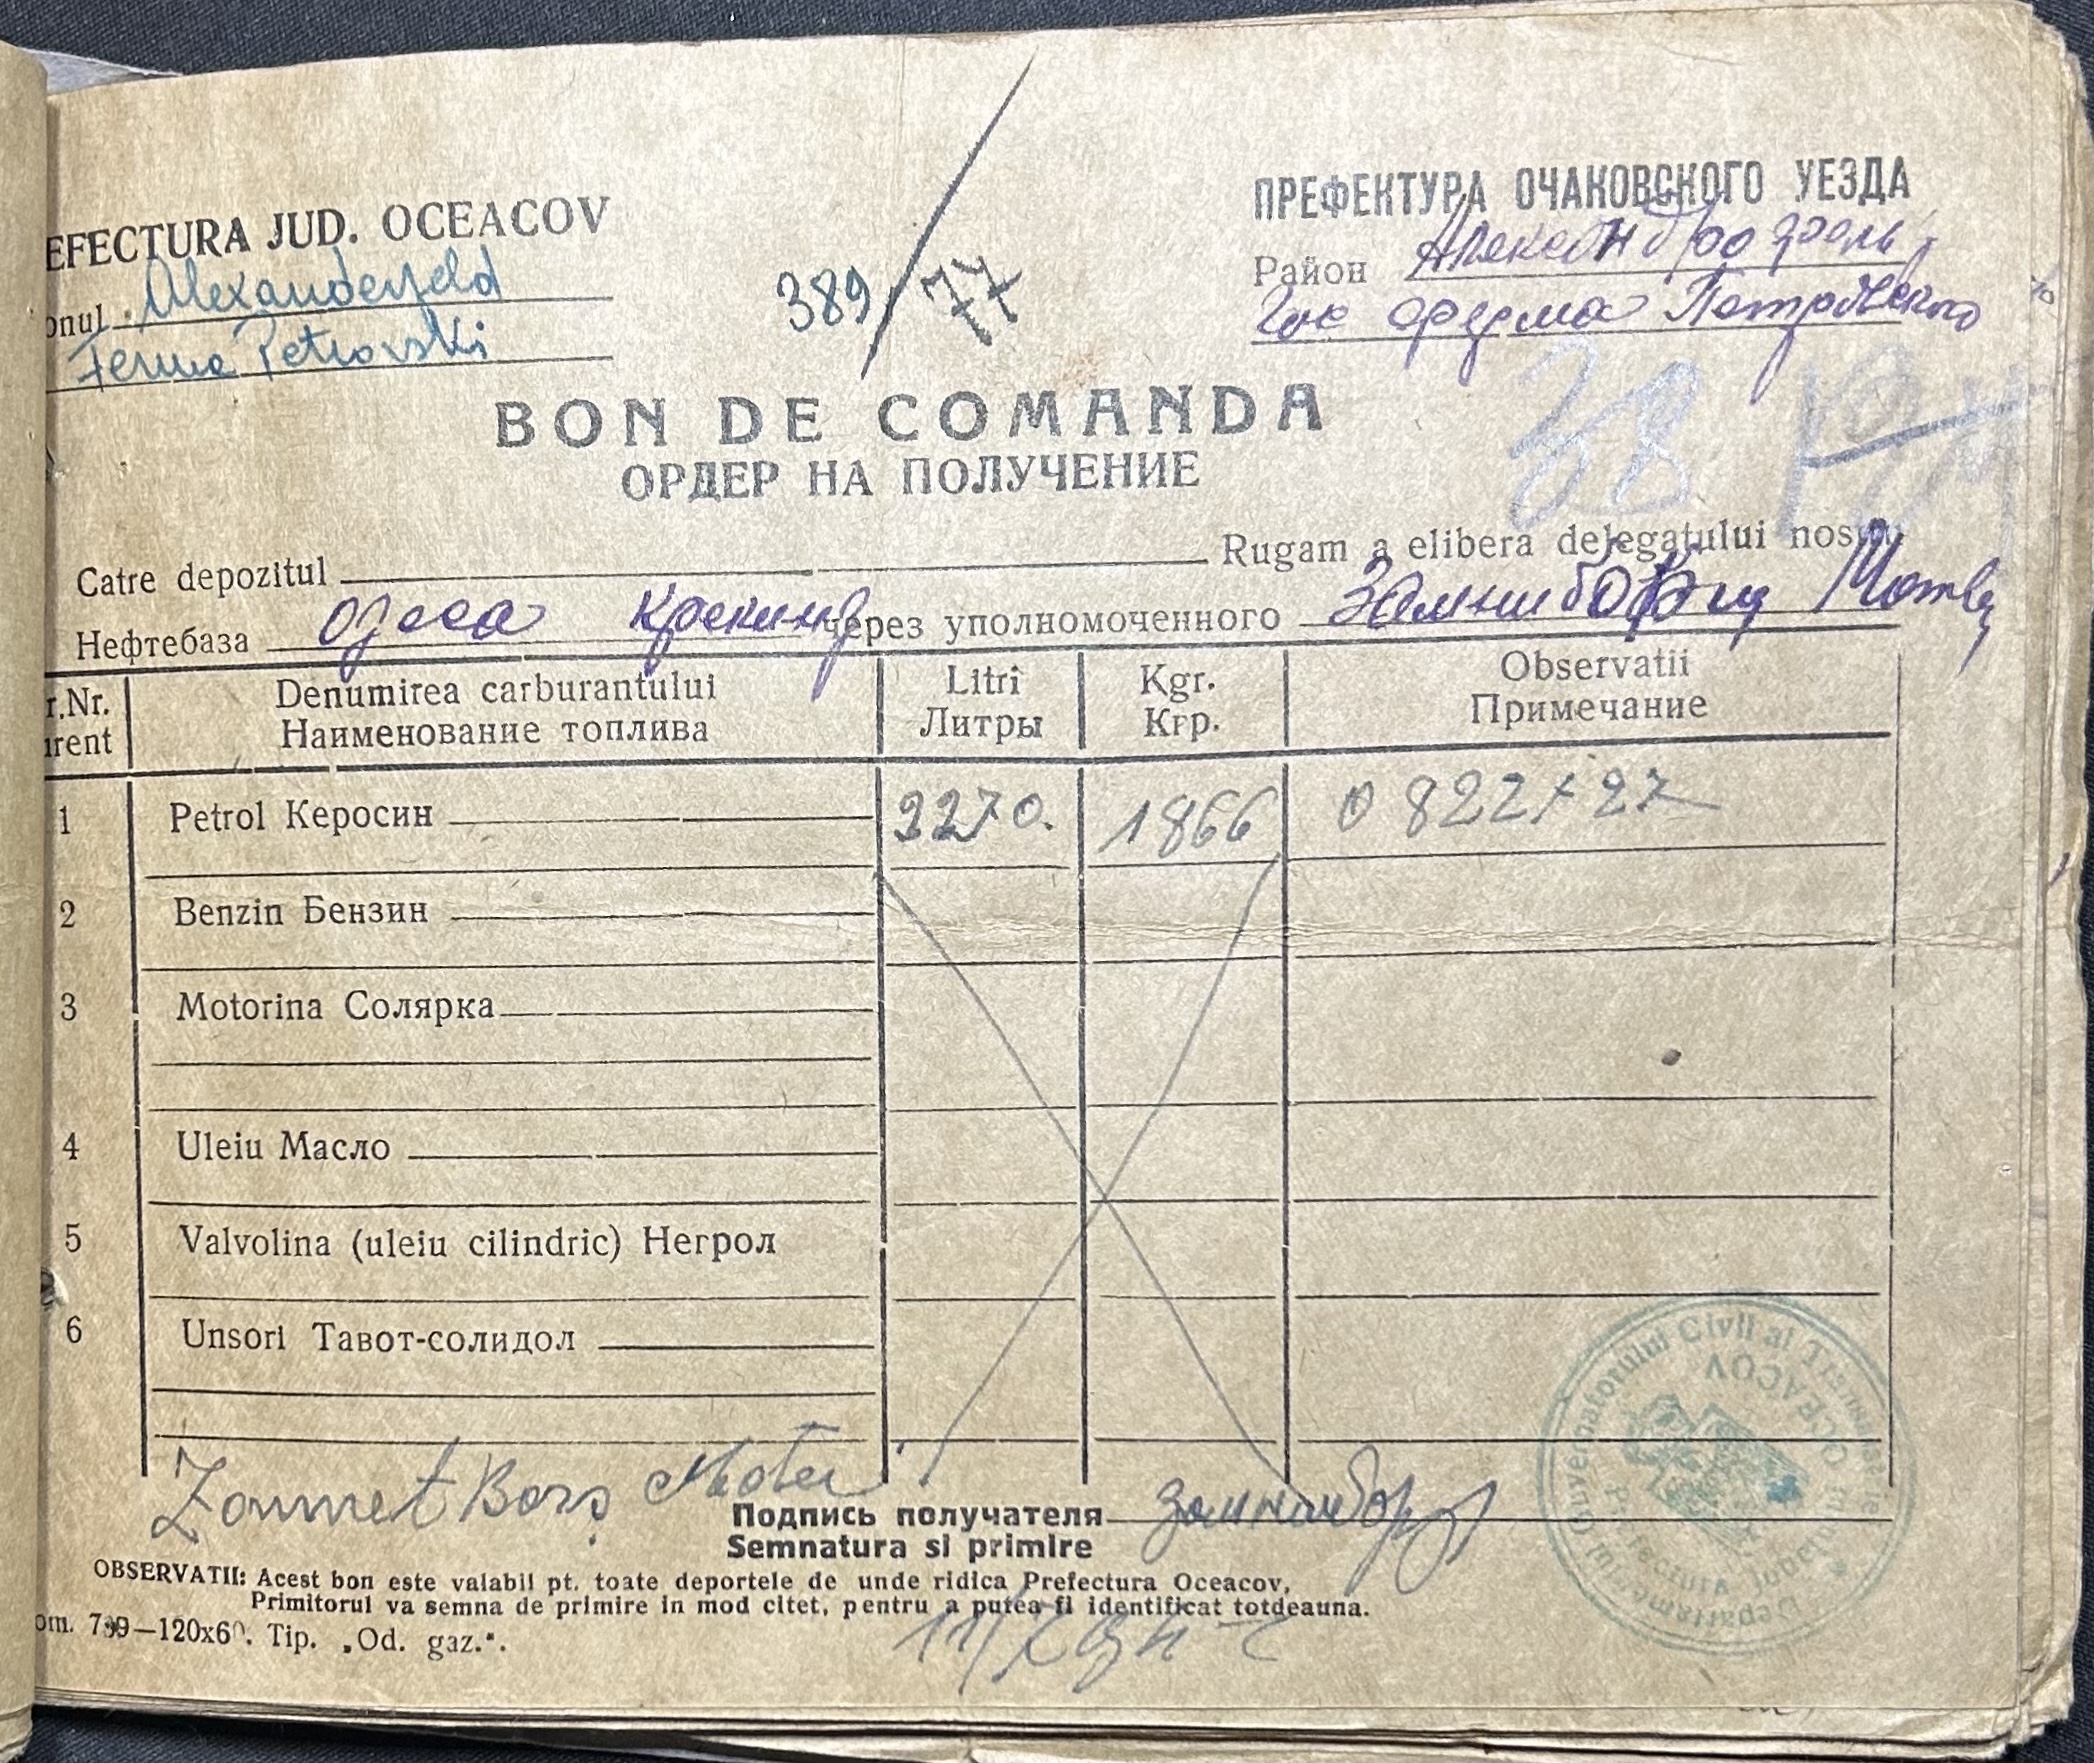 EFECTURA JUD. OCEACOV
onul Alexanderfeld
Ferma Petrovski
389/77
ПРЕФЕКТУРА ОЧАКОВСКОГО УЕЗДА
Район
Гос ферма Петровского
BON DE COMANDA
ОРДЕР НА ПОЛУЧЕНИЕ
38
Catre depozitul Rugam a elibera delegatului nostru
Нефтебаза Одеса Крекинг через уполномоченного
r.Nr. Denumirea carburantului Litri Kgr. Observatii
urent Наименование топлива Литры Кгр. Примечание
1 Petrol Керосин 2270. 1866 0 822 + 27
2 Benzin Бензин
3 Motorina Солярка
4 Uleiu Масло
5 Valvolina (uleiu cilindric) Негрол
6 Unsori Тавот-солидол
Подпись получателя
Semnatura si primire
OBSERVATII: Acest bon este valabil pt. toate deportele de unde ridica Prefectura Oceacov,
Primitorul va semna de primire in mod citet, pentru a putea fi identificat totdeauna.
om. 799—120x60. Tip. „Od. gaz.“.
Guvernatorului Civil al Transnistriei
Prefectura Judetului
OCEACOV